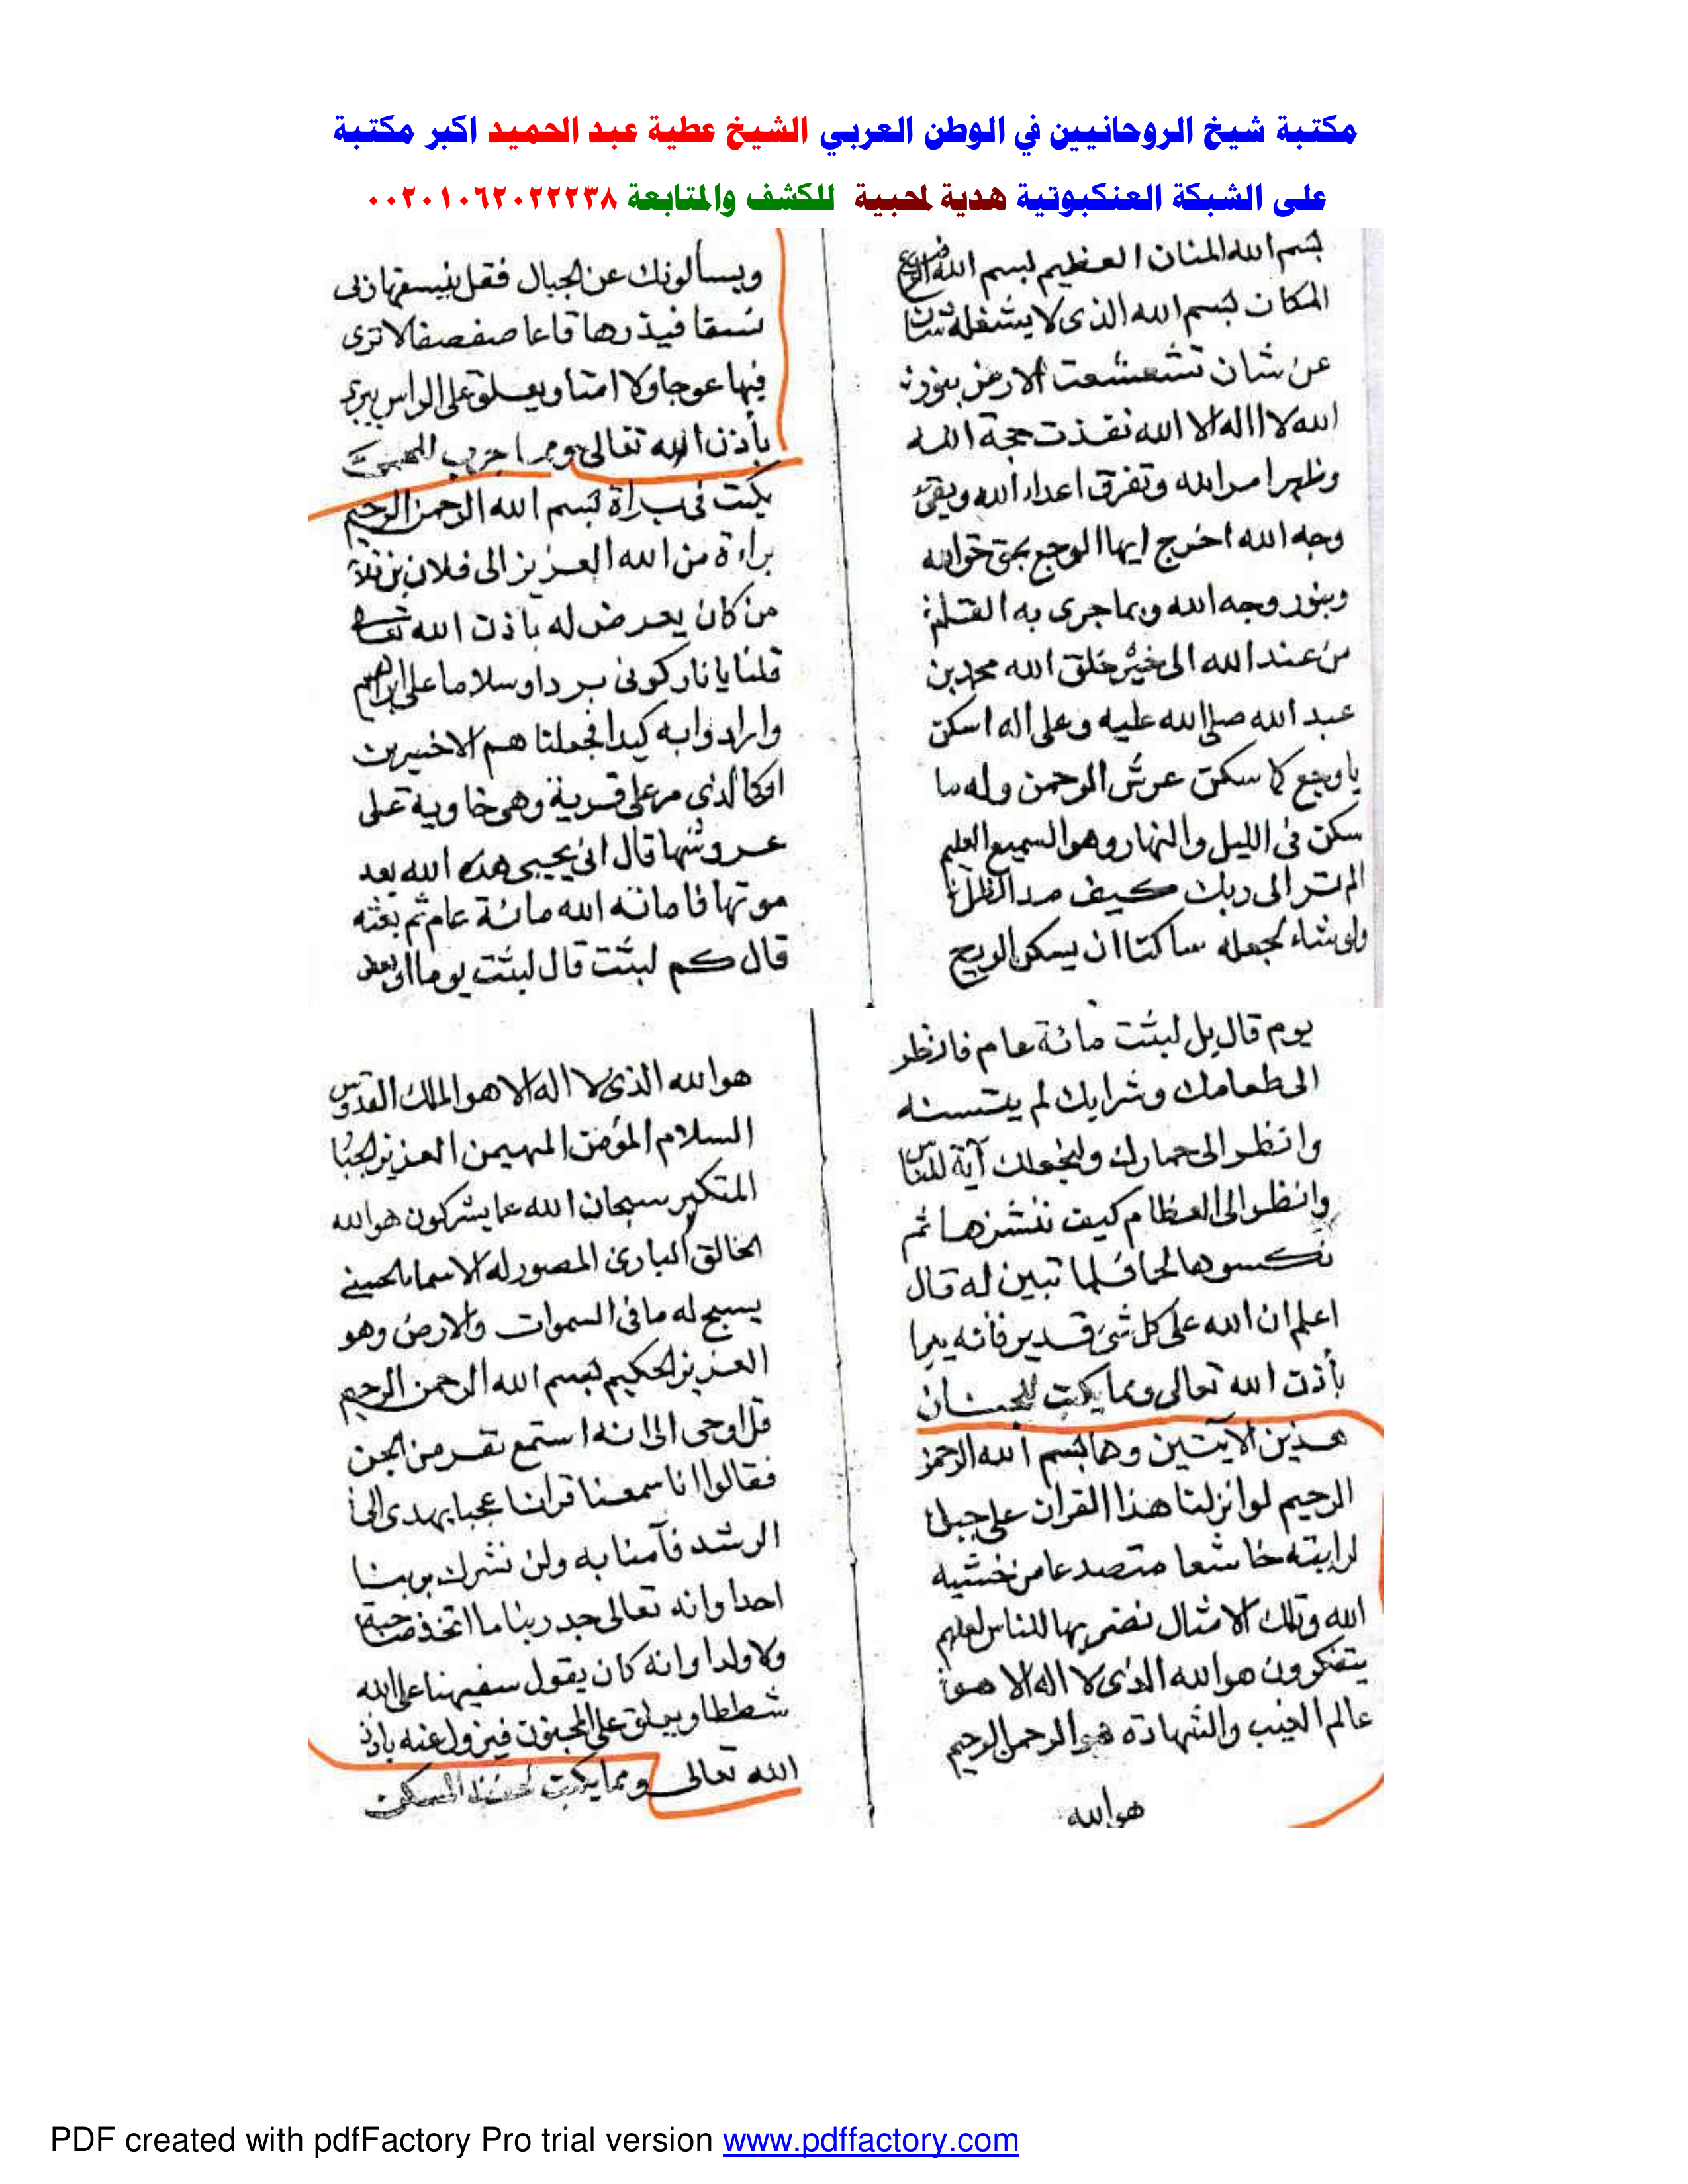 مكتبة شيخ الروحانيين في الوطن العربي الشيخ عطية عبد الحميد اكبر مكتبة
على الشبكة العنكبوتية هدية لمحبية للكشف والمتابعة ٠٠٢٠١٠٦٢٠٢٢٢٣٨
بسم الله المنان العظيم بسم الله
المكان بسم الله الذى لا يشغله شان
عن شان تشعشعت الارض بنور
الله لا اله الا الله نفذت حجة الله
وظهر امر الله وتفرق اعداء الله وبقى
وجه الله اخرج ايها الوجع بحق
وبنور وجه الله وبما جرى به القلم
من عند الله الى خير خلق الله محمد بن
عبد الله صلى الله عليه وعلى اله اسكن
يا وجع كما سكن عرش الرحمن وله ما
سكن فى الليل والنهار وهو السميع العليم
الم تر الى ربك كيف مد الظل
ولو شاء لجعله ساكنا ان يسكن الريح
ويسألونك عن الجبال فقل ينسفها ربى
نسفا فيذرها قاعا صفصفا لا ترى
فيها عوجا ولا امتا ويعلق على الراس يبرى
بأذن الله تعالى ومما جرب
يكتب فى براة بسم الله الرحمن الرحيم
براءة من الله العزيز الى فلان بن
من كان يعرض له باذن الله تعالى
قلنا يا نار كونى بردا وسلاما على ابراهيم
وارادوا به كيدا فجعلنا هم الاخسرين
او كالذى مر على قرية وهى خاوية على
عروشها قال انى يحيى هذه الله بعد
موتها فاماته الله مائة عام ثم بعثه
قال كم لبثت قال لبثت يوما او بعض
يوم قال بل لبثت مائة عام فانظر
الى طعامك وشرابك لم يتسنه
وانظر الى حمارك ولنجعلك آية للناس
وانظر الى العظام كيف ننشزها ثم
نكسوها لحما فلما تبين له قال
اعلم ان الله على كل شئ قدير فانه يبرا
بأذن الله تعالى ومما يكتب
هذين الآيتين وهما بسم الله الرحمن
الرحيم لو انزلنا هذا القران على جبل
لرايته خاشعا متصدعا من خشية
الله وتلك الامثال نضربها للناس لعلهم
يتفكرون هو الله الذى لا اله الا هو
عالم الغيب والشهادة هو الرحمن الرحيم
هو الله
هو الله الذى لا اله الا هو الملك القدوس
السلام المؤمن المهيمن العزيز الجبا
المتكبر سبحان الله عما يشركون هو الله
الخالق البارئ المصور له الاسماء الحسنى
يسبح له ما فى السموات والارض وهو
العزيز الحكيم بسم الله الرحمن الرحيم
قل اوحى الى انه استمع نفر من الجن
فقالوا انا سمعنا قرانا عجبا يهدى الى
الرشد فآمنا به ولن نشرك بربنا
احدا وانه تعالى جد ربنا ما اتخذ صاحبة
ولا ولدا وانه كان يقول سفيهنا على الله
شططا ويعلق على المجنون فيزول عنه باذن
الله تعالى ومما يكتب
PDF created with pdfFactory Pro trial version www.pdffactory.com